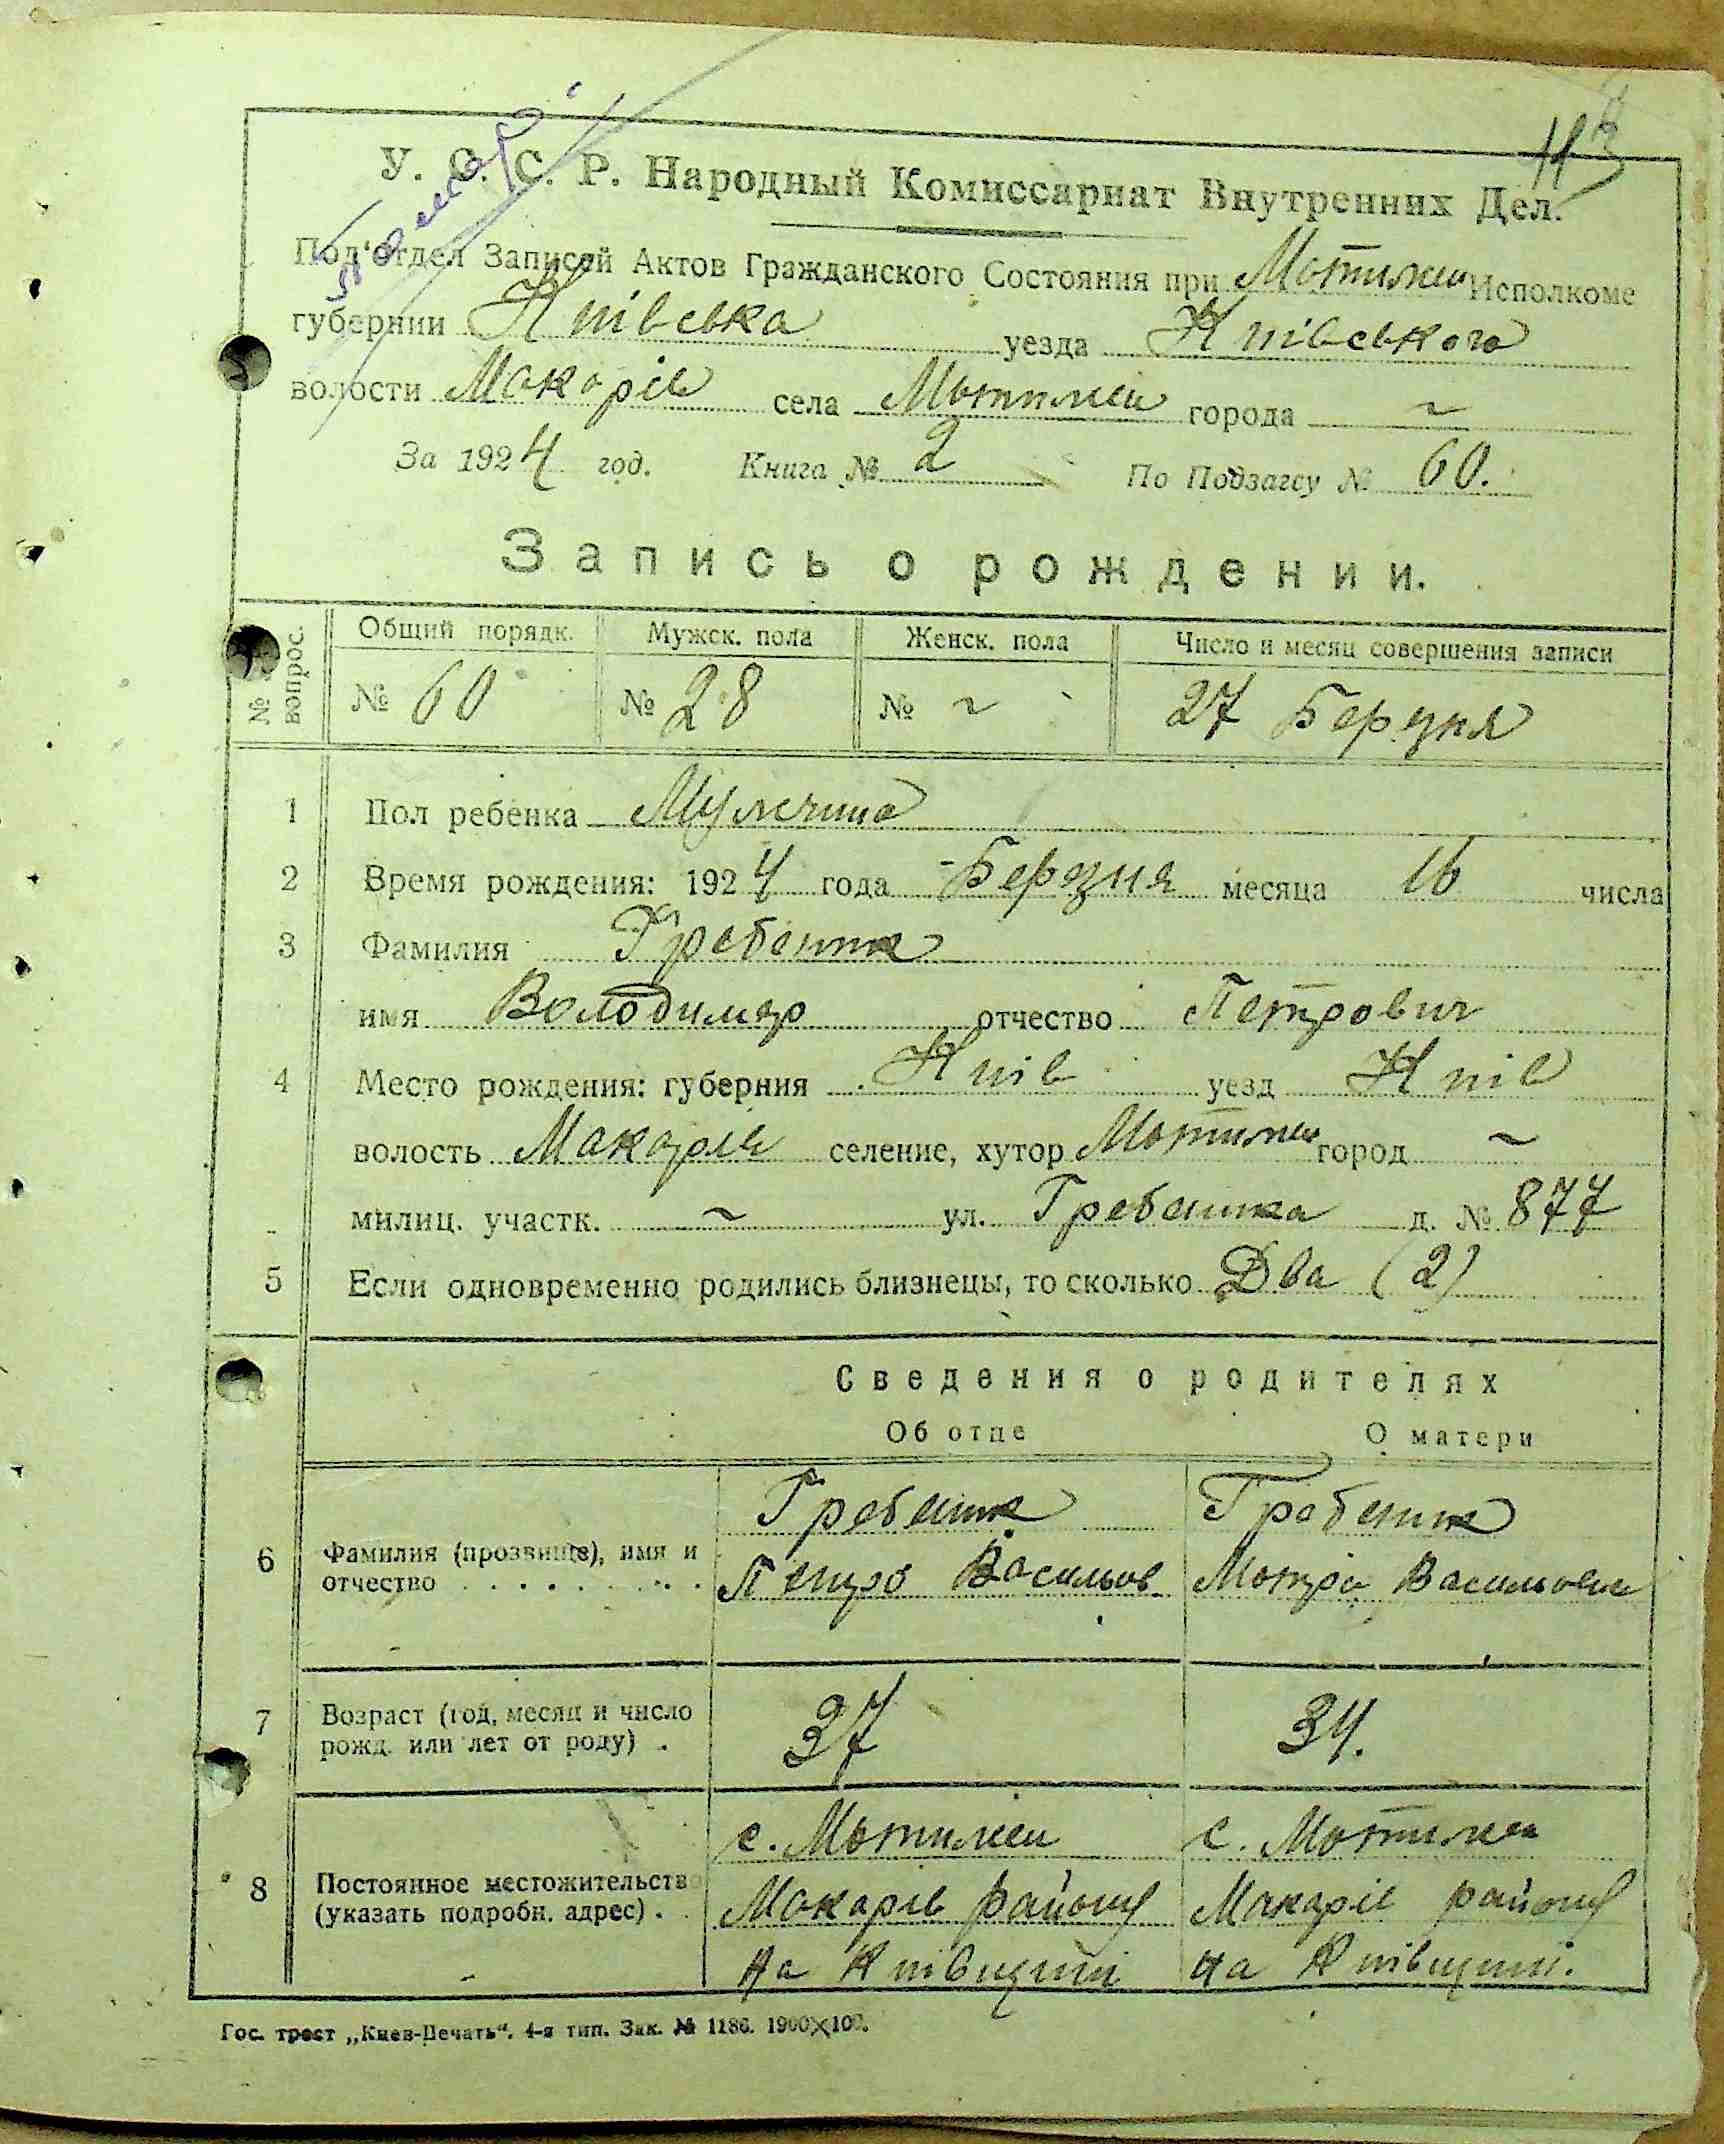 113
У. С. С. Р. Народный Комиссариат Внутренних Дел.
Под'отдел Записей Актов Гражданского Состояния при Мотижин Исполкоме
губернии Киівська уезда Киівського
волости Макарів села Мотижин города ~
За 1924 год. Книга № 2 По Подзагсу № 60.
Запись о рождении.
№ вопрос. Общий порядк. Мужск. пола Женск. пола Число и месяц совершения записи
№ 60 № 28 № ~ 27 Березня
1 Пол ребенка Мужчина
2 Время рождения: 1924 года Березня месяца 16 числа
3 Фамилия Гребеник
имя Володимер отчество Петрович
4 Место рождения: губерния Киів уезд Киів
волость Макарів селение, хутор Мотижин город ~
милиц. участк. ~ ул. Гребеника д. № 877
5 Если одновременно родились близнецы, то сколько Два (2)
Сведения о родителях
Об отце О матери
Гребеник Гребеник
6 Фамилия (прозвище), имя и
отчество Петро Васильов Мотря Васильовна
7 Возраст (год, месяц и число
рожд. или лет от роду) 37 34.
с. Мотижин с. Мотижин
8 Постоянное местожительство
(указать подробн. адрес) Макарів району Макарів району
на Киівщині на Киівщині.
Гос. трест „Киев-Печать“. 4-я тип. Зак. № 1186. 1900×100.